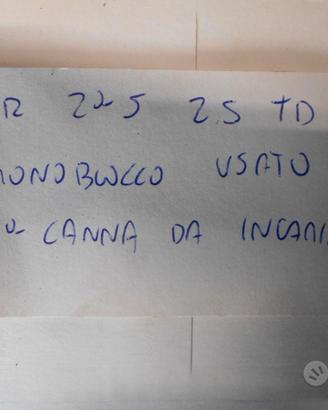 225 2.5 TD
MONOBLOCCO USATO
CANNA DA